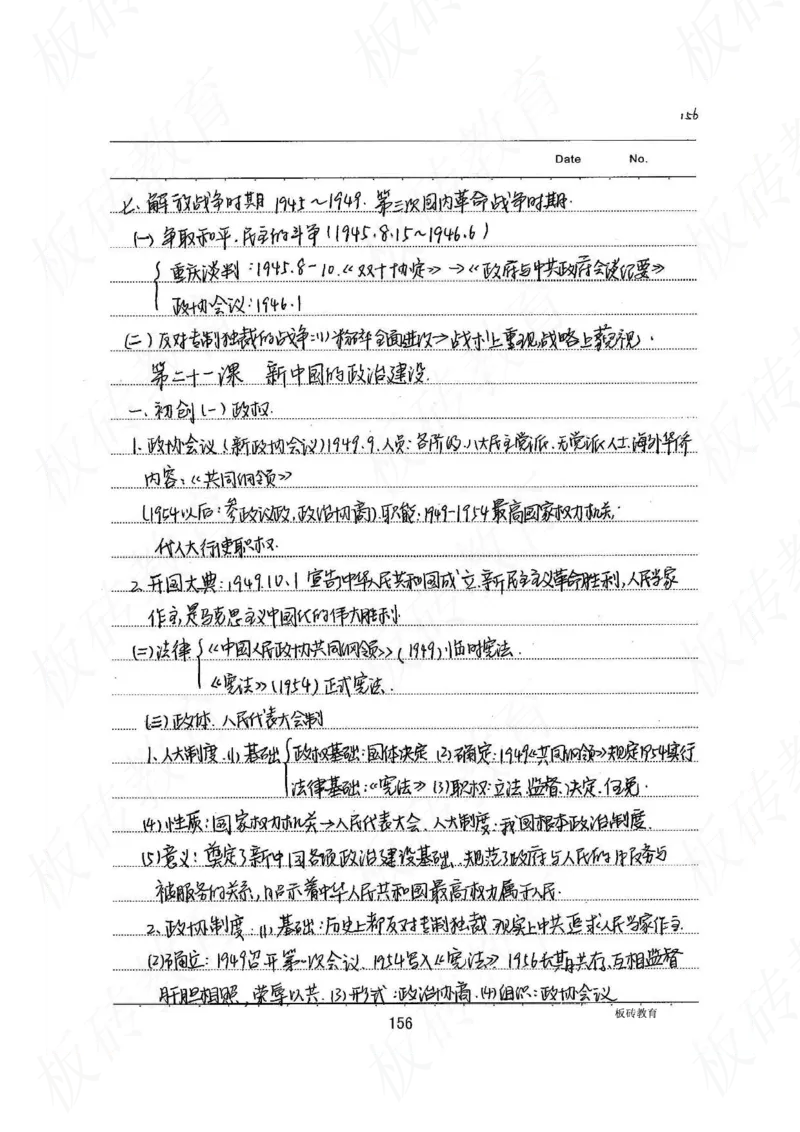 156
Date No.
七、解放战争时期 1945~1949. 第三次国内革命战争时期.
(一) 争取和平.民主的斗争 (1945.8.15~1946.6)
重庆谈判:1945.8-10.《双十协定》→《政府与中共政府会谈纪要》
政协会议:1946.1
(二) 反对专制独裁的战争:(1)粉碎全面进攻→战术上重视,战略上藐视.
第二十一课 新中国的政治建设.
一、初创(一)政权.
1.政协会议(新政协会议)1949.9.人员:各阶级.八大民主党派.无党派人士.海外华侨
内容:《共同纲领》
(1954以后:参政议政,政治协商)职能:1949-1954最高国家权力机关.
代人大行使职权.
2.开国大典:1949.10.1 宣告中华人民共和国成立.新民主主义革命胜利,人民当家
作主,是马克思主义中国化的伟大胜利.
(二)法律 《中国人民政协共同纲领》(1949)临时宪法.
《宪法》(1954)正式宪法.
(三)政体. 人民代表大会制
1.人大制度.(1)基础 政权基础:国体决定 (2)确定:1949《共同纲领》规定1954实行
法律基础:《宪法》(3)职权:立法.监督.决定.任免.
(4)性质:国家权力机关→人民代表大会.人大制度:我国根本政治制度.
(5)意义:奠定了新中国各项政治建设基础.规范了政府与人民的服务与
被服务的关系,昭示着中华人民共和国最高权力属于人民.
2.政协制度.(1)基础:历史上都反对专制独裁 现实上中共追求人民当家作主.
(2)确立:1949召开第一次会议.1954写入《宪法》1956长期共存.互相监督
肝胆相照,荣辱以共.(3)形式:政治协商.(4)组织:政协会议
156
板砖教育